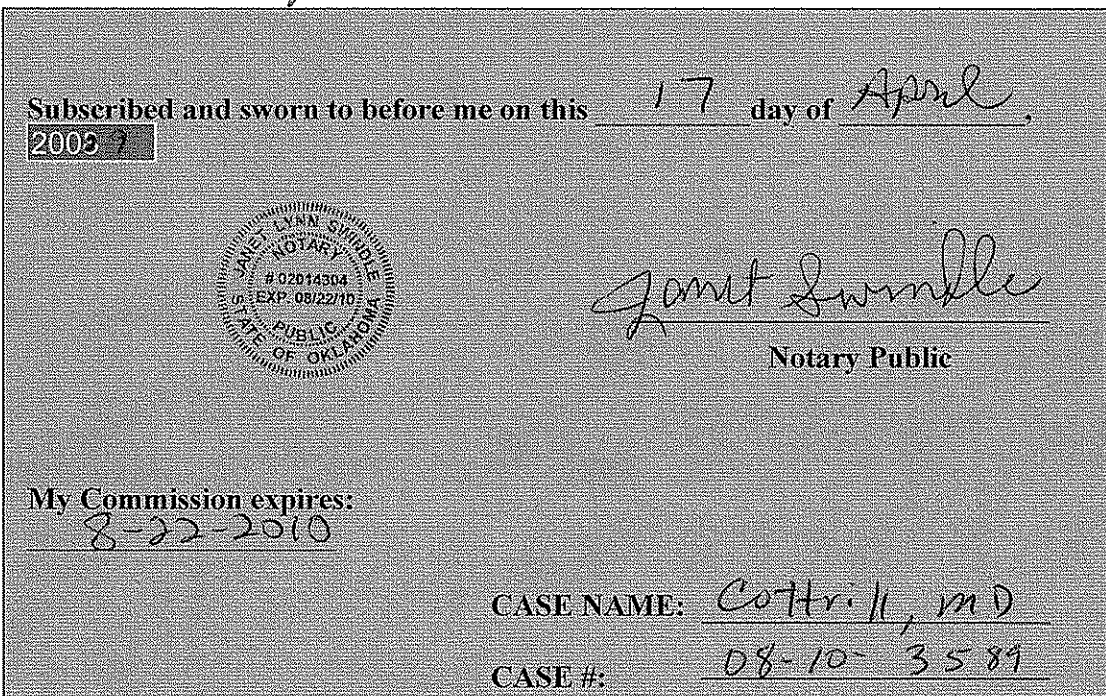 Subscribed and sworn to before me on this 17 day of April,
JANET LYNN SWINDLE
NOTARY
# 02014304
EXP. 08/22/10
PUBLIC
STATE OF OKLAHOMA
Janet Swindle
Notary Public
My Commission expires:
8-22-2010
CASE NAME: Cottrill, MD
CASE #: 08-10-3589